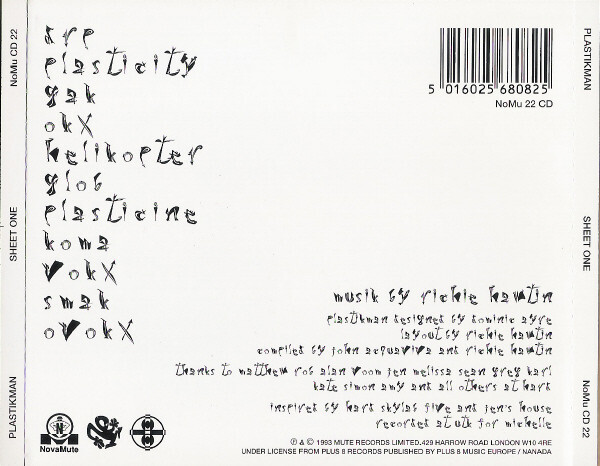 drp
plasticity
gak
okx
helikopter
glob
plasticine
koma
vokx
smak
ovokx
NoMu CD 22
SHEET ONE
PLASTIKMAN
PLASTIKMAN
SHEET ONE
NoMu CD 22
5 016025 680825
NoMu 22 CD
musik by richie hawtin
plastikman designed by dominic ayre
layout by richie hawtin
compiled by john acquaviva and richie hawtin
thanks to matthew rob alan voom jen melissa sean greg karl
kate simon amy and all others at hard
inspired by hard skylab five and jen's house
recorded at utk for michelle
NovaMute
℗ & © 1993 MUTE RECORDS LIMITED.429 HARROW ROAD LONDON W10 4RE
UNDER LICENSE FROM PLUS 8 RECORDS PUBLISHED BY PLUS 8 MUSIC EUROPE / NANADA